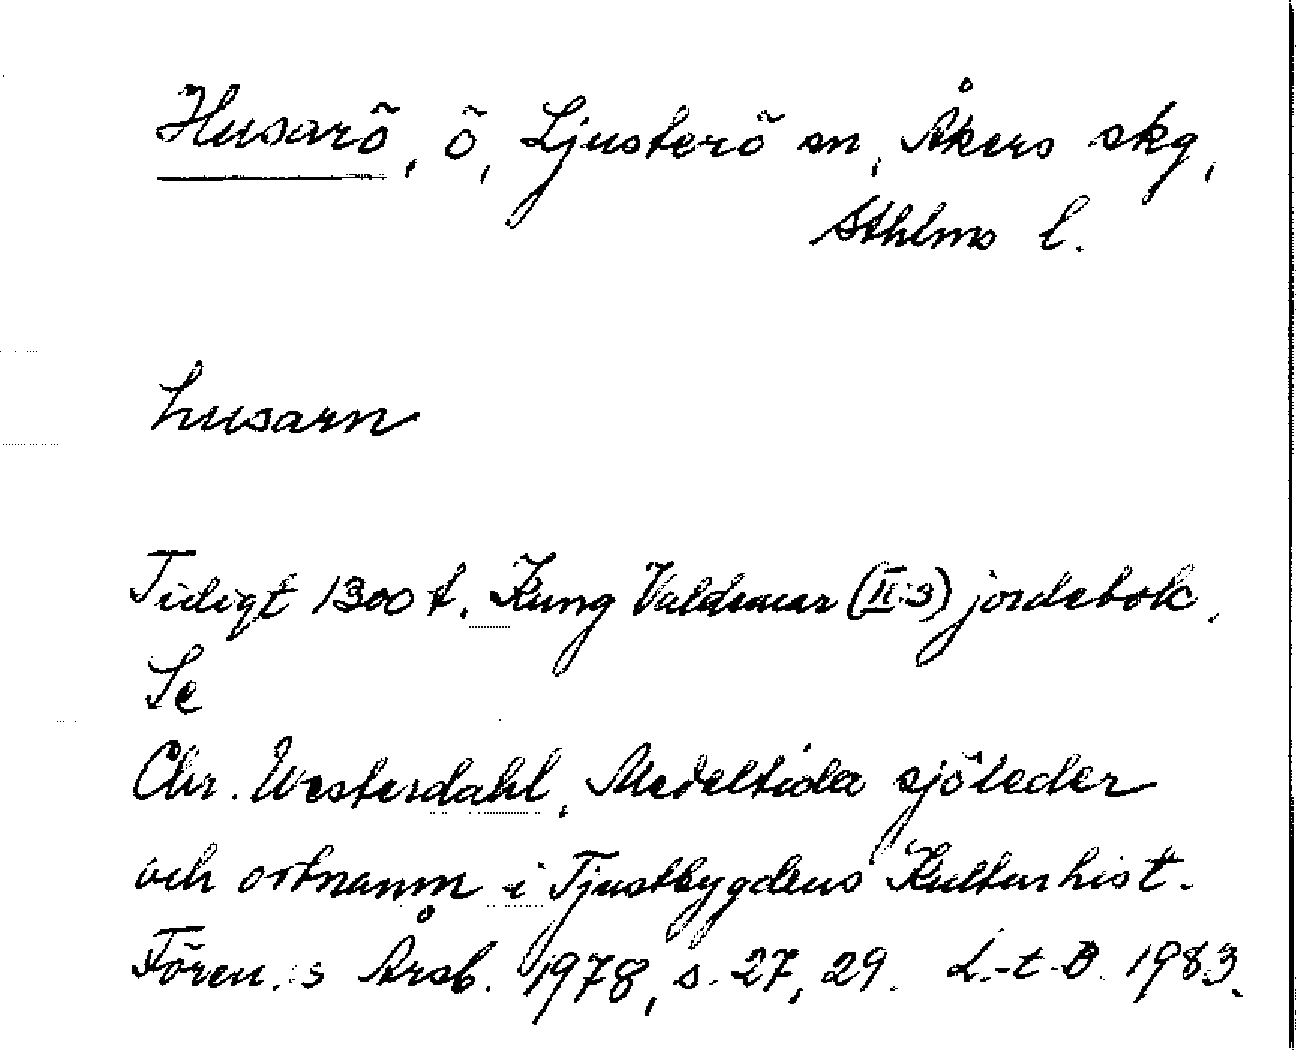 Husarö, ö, Ljusterö sn, Åkers skg,
Sthlms l.
husarn
Tidigt 1300 t. Kung Valdemar (II:s) jordebok.
Se
Chr. Westerdahl, Medeltida sjöleder
och ortnamn i Tjustbygdens Kulturhist.
Fören.:s Årsb. 1978, s. 27, 29. L-t-B. 1983.